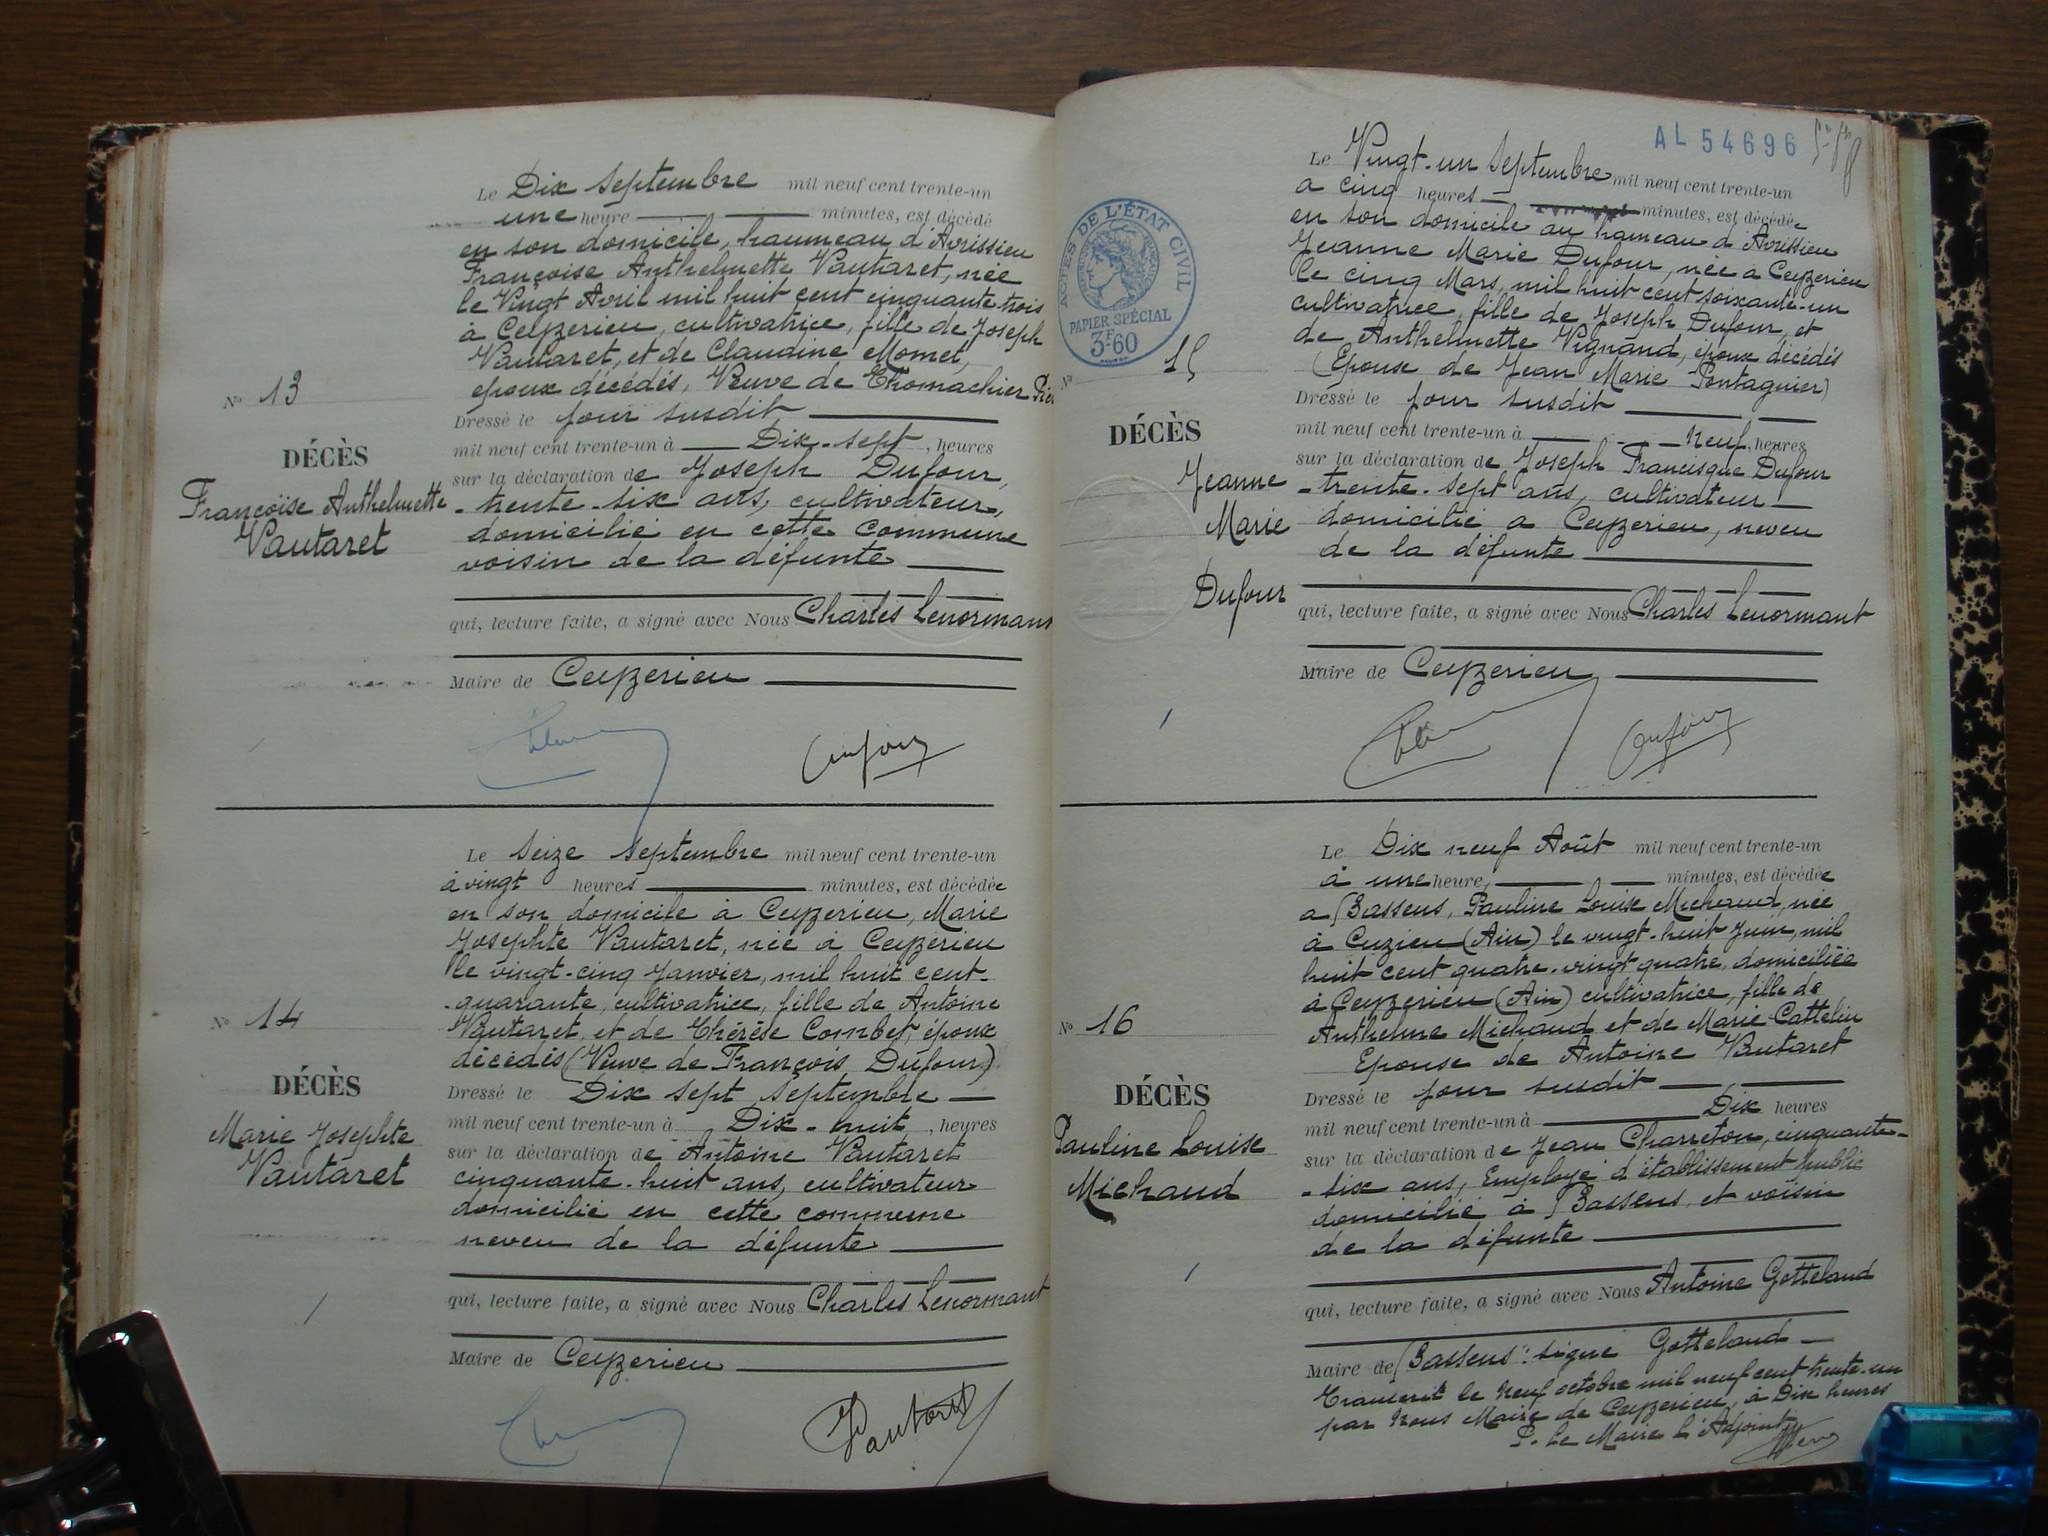 Le Dix septembre mil neuf cent trente-un
une heure minutes, est décédé
en son domicile, haumeau d'Avrissieu
Françoise Anthelmette Vautaret, née
le Vingt Avril mil huit cent cinquante-trois
à Ceyzerieu, cultivatrice, fille de Joseph
Vautaret, et de Claudine Momet,
epoux décédés, Veuve de Thomachier
No 13
Dressé le jour susdit
mil neuf cent trente-un à Dix-sept, heures
DÉCÈS
sur la déclaration de Joseph Dufour,
Françoise Anthelmette
Vautaret
trente-six ans, cultivateur,
domicilié en cette commune
voisin de la défunte
qui, lecture faite, a signé avec Nous Charles Lenormant
Maire de Ceyzerieu
Dufour
Le Seize septembre mil neuf cent trente-un
à vingt heures minutes, est décédée
en son domicile à Ceyzerieu, Marie
Josephte Vautaret, née à Ceyzerieu
le vingt-cinq Janvier, mil huit cent-
-quarante, cultivatrice, fille de Antoine
No 14
Vautaret, et de Thérèse Combet, époux
décédés (Veuve de François Dufour)
DÉCÈS
Marie Josephte
Vautaret
Dressé le Dix sept septembre
mil neuf cent trente-un à Dix-huit, heures
sur la déclaration de Antoine Vautaret
cinquante-huit ans, cultivateur
domicilié en cette commune
neveu de la défunte
qui, lecture faite, a signé avec Nous Charles Lenormant
Maire de Ceyzerieu
Vautaret
AL 54696
Le Vingt-un septembre mil neuf cent trente-un
a cinq heures minutes, est décédée
en son domicile au hameau d'Avrissieu
Jeanne Marie Dufour, née à Ceyzerieu
le cinq Mars, mil huit cent soixante-un
cultivatrice, fille de Joseph Dufour, et
de Anthelmette Vignand, époux décédés
(Epouse de Jean Marie Pontagnier)
ACTES DE L'ÉTAT CIVIL
PAPIER SPÉCIAL
3F60
No 15
Dressé le jour susdit
mil neuf cent trente-un à Neuf, heures
DÉCÈS
Jeanne
Marie
Dufour
sur la déclaration de Joseph Francisque Dufour
-trente-sept ans, cultivateur
domicilié a Ceyzerieu, neveu
de la défunte
qui, lecture faite, a signé avec Nous Charles Lenormant
Maire de Ceyzerieu
Dufour
Le Dix neuf Août mil neuf cent trente-un
à une heure, minutes, est décédée
a Bassens, Pauline Louise Michaud, née
à Cuzieu (Ain) le vingt-huit Juin, mil
huit cent quatre-vingt quatre, domiciliée
à Ceyzerieu (Ain) cultivatrice, fille de
No 16
Anthelme Michaud et de Marie Cattelin
Epouse de Antoine Vautaret
DÉCÈS
Pauline Louise
Michaud
Dressé le jour susdit
mil neuf cent trente-un à Dix heures
sur la déclaration de Jean Charreton, cinquante-
-six ans, Employé d'établissement public
domicilié à Bassens, et voisin
de la défunte
qui, lecture faite, a signé avec Nous Antoine Gotteland
Maire de Bassens: signé Gotteland
Transcrit le Neuf octobre mil neuf cent trente-un
par Nous Maire de Ceyzerieu, à Dix heures
P. le Maire L'Adjoint